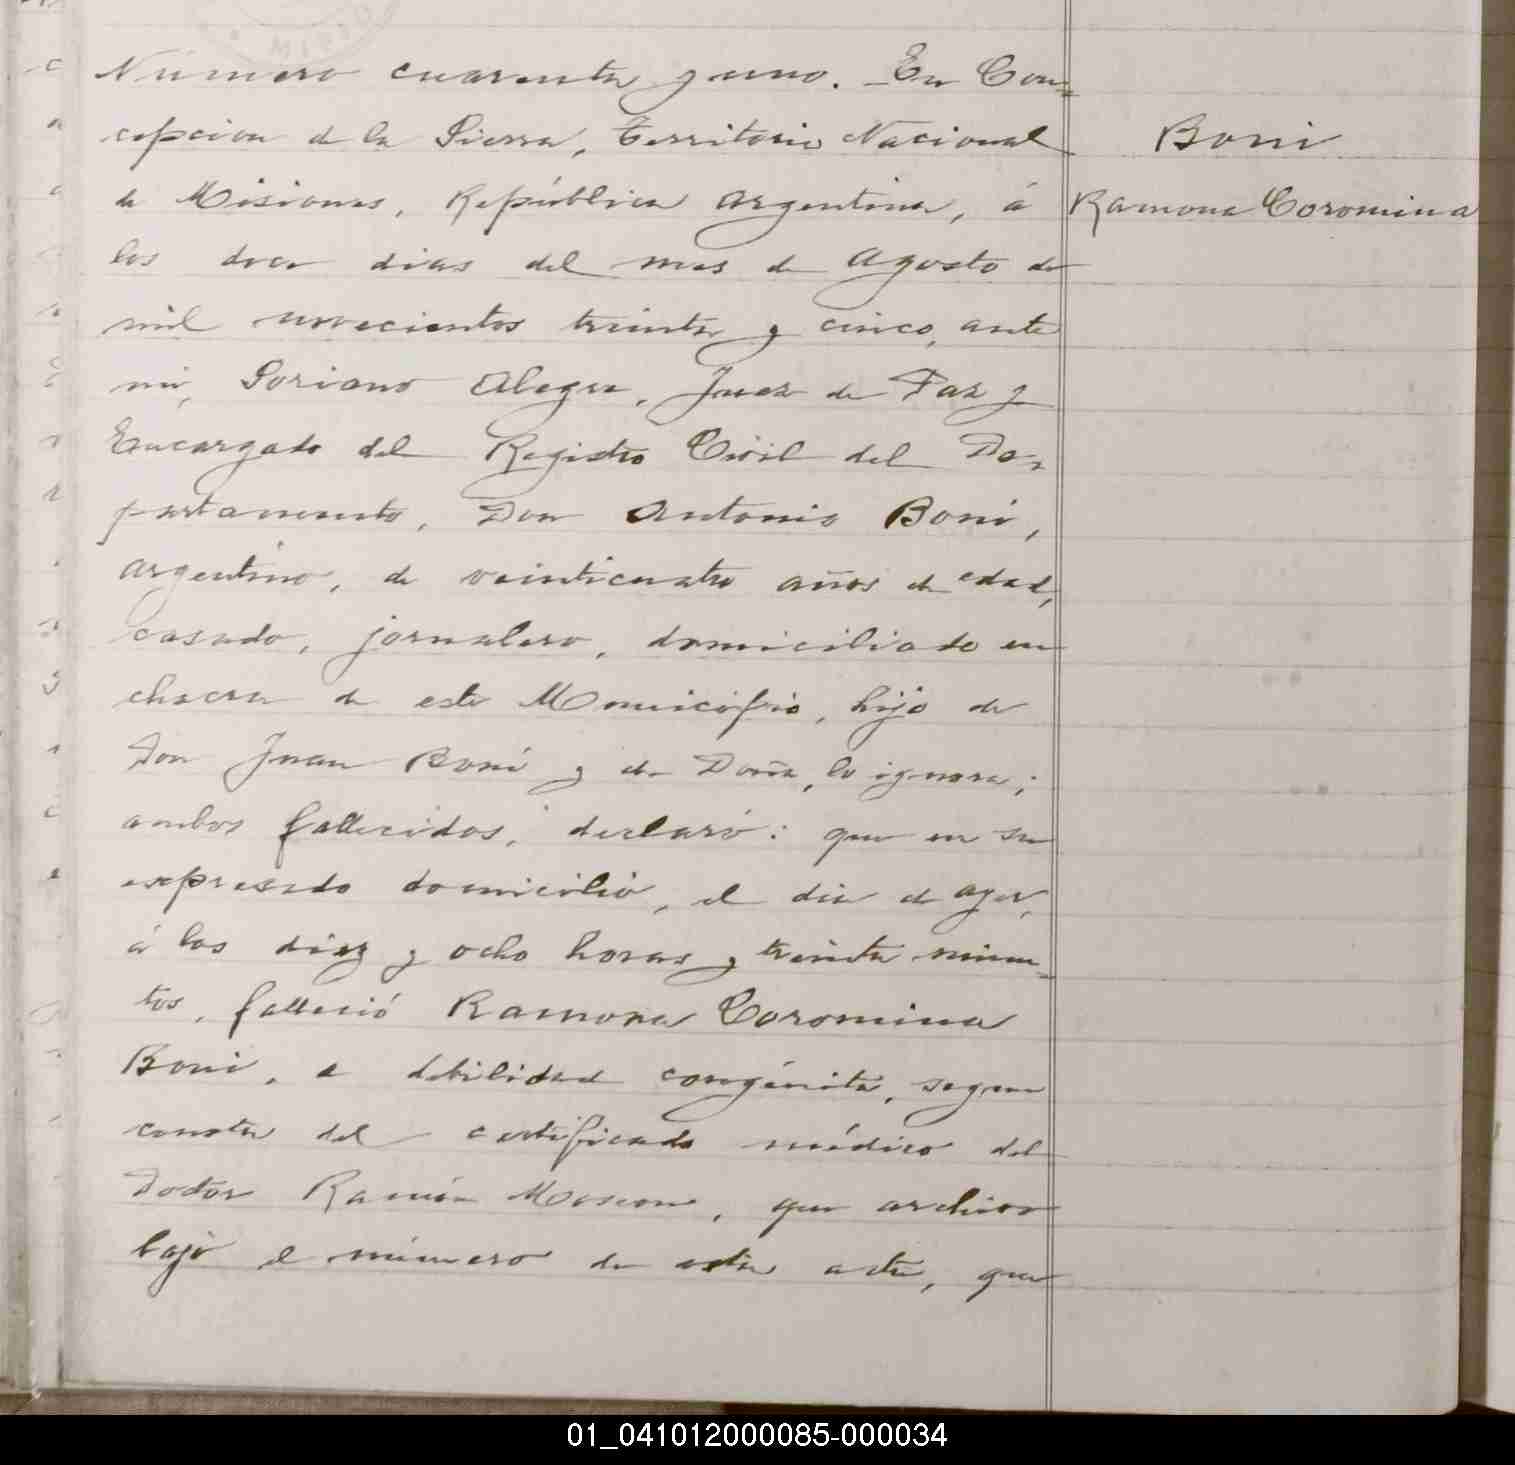 Número cuarenta y uno. En Con-
cepcion de la Sierra, Territorio Nacional
de Misiones, República Argentina, á
los doce dias del mes de Agosto de
mil novecientos treinta y cinco, ante
mi, Soriano Alegre, Juez de Paz y
Encargado del Registro Civil del De-
partamento, Don Antonio Boni,
argentino, de veinticuatro años de edad,
casado, jornalero, domiciliado en
chacra de este Municipio, hijo de
Don Juan Boni y de Doña, lo ignora;
ambos fallecidos, declaró: que en su
expresado domicilio, el dia de ayer,
á las diez y ocho horas y treinta minu-
tos, falleció Ramona Coromina
Boni, de debilidad congénita, segun
consta del certificado médico del
Doctor Ramón, que archivo
bajo el número de esta acta, que
Boni
Ramona Coromina
MISIO
01_041012000085-000034